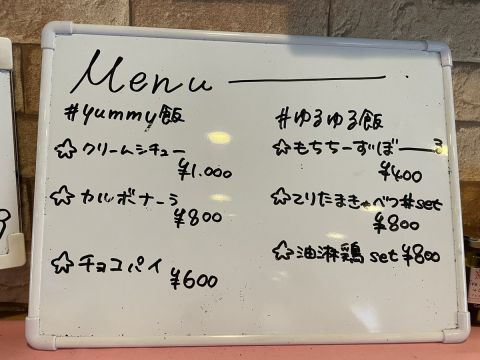 Menu
#yummy飯
☆クリームシチュー
¥1,000
☆カルボナーラ
¥800
☆チョコパイ
¥600
#ゆるゆる飯
☆もちちーずぼーる
¥400
☆てりたまきゃべつ丼set
¥800
☆油淋鶏set ¥800